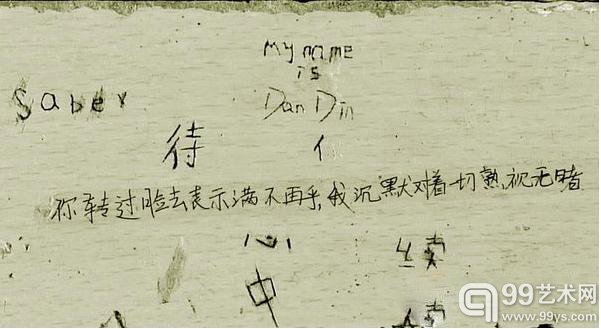 My name
is
Saber
Dan Din
待
你转过脸去表示满不再乎,我沉默对着一切熟视无睹
心
中
99艺术网
www.99ys.com